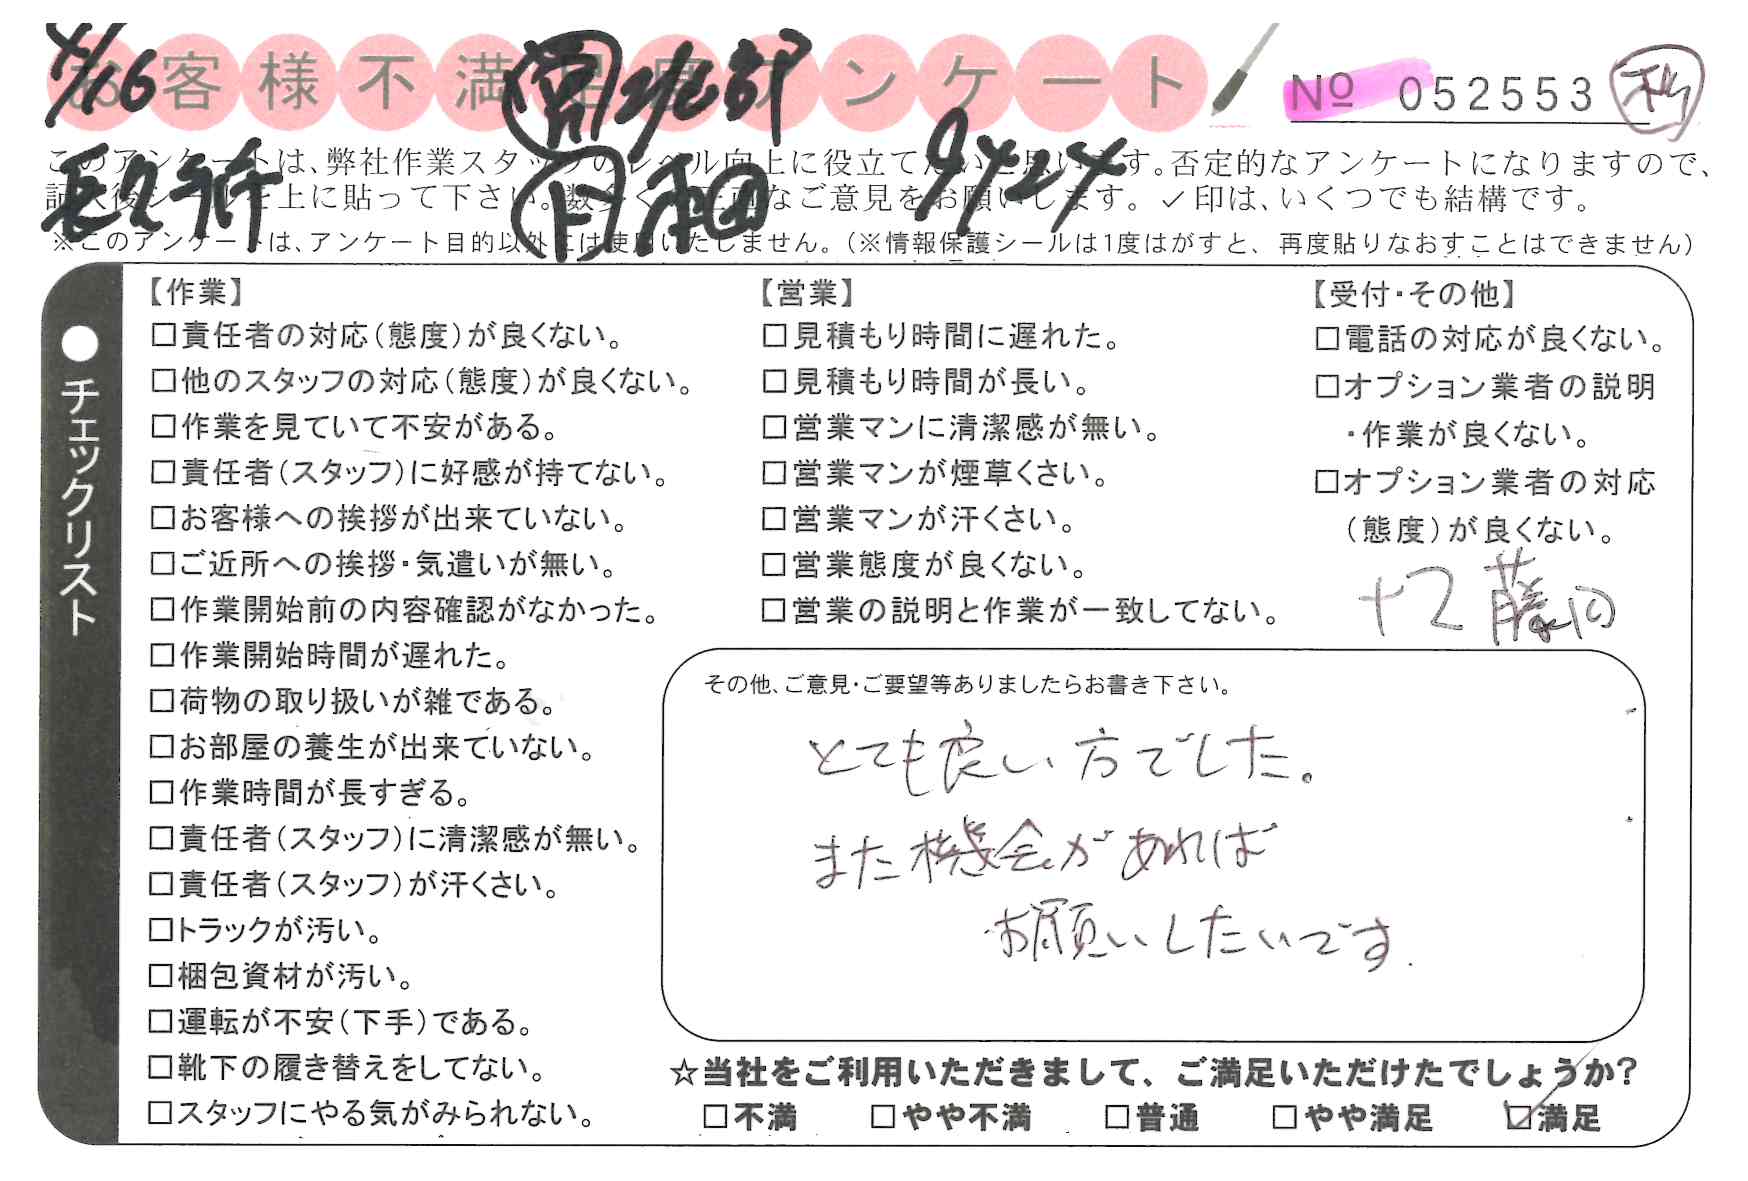 お客様不満足度アンケート
4/16
北部
Nº 052553
このアンケートは、弊社作業スタッフのレベル向上に役立てたいと思います。否定的なアンケートになりますので、
記入後シールを上に貼って下さい。数多くの正直なご意見をお願いします。✓印は、いくつでも結構です。
※このアンケートは、アンケート目的以外には使用いたしません。（※情報保護シールは1度はがすと、再度貼りなおすことはできません）
●チェックリスト
【作業】
□責任者の対応（態度）が良くない。
□他のスタッフの対応（態度）が良くない。
□作業を見ていて不安がある。
□責任者（スタッフ）に好感が持てない。
□お客様への挨拶が出来ていない。
□ご近所への挨拶・気遣いが無い。
□作業開始前の内容確認がなかった。
□作業開始時間が遅れた。
□荷物の取り扱いが雑である。
□お部屋の養生が出来ていない。
□作業時間が長すぎる。
□責任者（スタッフ）に清潔感が無い。
□責任者（スタッフ）が汗くさい。
□トラックが汚い。
□梱包資材が汚い。
□運転が不安（下手）である。
□靴下の履き替えをしてない。
□スタッフにやる気がみられない。
【営業】
□見積もり時間に遅れた。
□見積もり時間が長い。
□営業マンに清潔感が無い。
□営業マンが煙草くさい。
□営業マンが汗くさい。
□営業態度が良くない。
□営業の説明と作業が一致してない。
【受付・その他】
□電話の対応が良くない。
□オプション業者の説明
・作業が良くない。
□オプション業者の対応
（態度）が良くない。
その他、ご意見・ご要望等ありましたらお書き下さい。
とても良い方でした。
また機会があれば
お願いしたいです.
☆当社をご利用いただきまして、ご満足いただけたでしょうか?
□不満 □やや不満 □普通 □やや満足 ☑満足